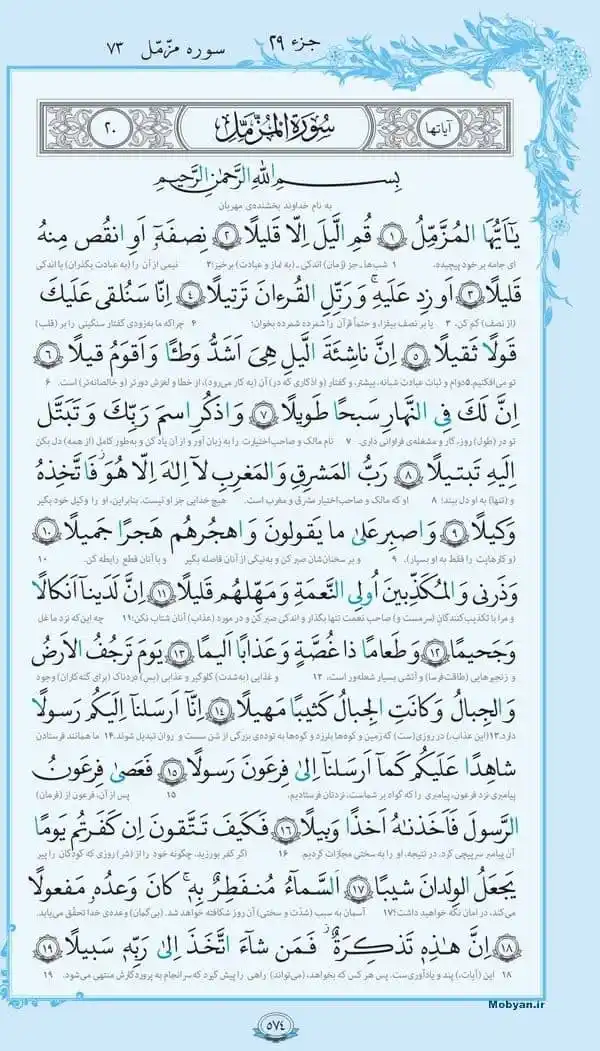 جزء ۲۹
سوره مزّمّل ۷۳
آیاتها سُورَةُ الْمُزَّمِّلِ ۲۰
بِسْمِ اللّٰهِ الرَّحْمٰنِ الرَّحيمِ
به نام خداوند بخشنده‌ی مهربان
يٰٓاَيُّهَا المُزَّمِّلُ ۱ قُمِ الَّيلَ اِلّا قَليلًا ۲ نِصفَهٗٓ اَوِ انقُص مِنهُ
ای جامه بر خود پیچیده. ۱ شب‌ها ـ جز (زمان) اندکی ـ (به نماز و عبادت) برخیز؛ ۲ نیمی از آن را (به عبادت بگذران) یا اندکی
قَليلًا ۳ اَو زِد عَلَيهِ ۚ وَ رَتِّلِ القُرءانَ تَرتيلًا ۴ اِنّا سَنُلقی عَلَيكَ
(از نصف) کم کن. ۳ یا بر نصف بیفزا، و حتماً قرآن را شمرده شمرده بخوان؛ ۴ چراکه ما به‌زودی گفتار سنگینی را بر (قلب)
قَولًا ثَقيلًا ۵ اِنَّ ناشِئَةَ الَّيلِ هِیَ اَشَدُّ وَطـًٔا وَ اَقوَمُ قيلًا ۶
تو می‌افکنیم. ۵ دوام و ثبات عبادت شبانه، بیشتر، و گفتار (و اذکاری که در) آن (به کار می‌رود)، از خطا و لغزش دورتر (و خالصانه‌تر) است. ۶
اِنَّ لَكَ فِی النَّهارِ سَبحًا طَويلًا ۷ وَ اذكُرِ اسمَ رَبِّكَ وَ تَبَتَّل
تو در (طول) روز، کار و مشغله‌ی فراوانی داری. ۷ نام مالک و صاحب‌اختیارت را به زبان آور و از آن یاد کن و به‌طور کامل (از همه) دل بکن
اِلَيهِ تَبتيلًا ۸ رَبُّ المَشرِقِ وَ المَغرِبِ لآ اِلٰهَ اِلّا هُوَ فَاتَّخِذهُ
و (تنها) به او دل ببند؛ ۸ او که مالک و صاحب‌اختیار مشرق و مغرب است. هیچ خدایی جز او نیست. بنابراین، او را وکیل خود بگیر
وَكيلًا ۹ وَ اصبِر عَلیٰ ما يَقولونَ وَ اهجُرهُم هَجرًا جَميلًا ۱۰
(و کارهایت را فقط به او بسپار). ۹ و بر سخنان‌شان صبر کن و به‌نیکی از آنان فاصله بگیر و با آنان قطع رابطه کن. ۱۰
وَ ذَرنی وَ المُكَذِّبينَ اُولِی النَّعمَةِ وَ مَهِّلهُم قَليلًا ۱۱ اِنَّ لَدَينآ اَنكالًا
و مرا با تکذیب‌کنندگانِ (سرمست و) صاحب نعمت تنها بگذار و اندکی صبر کن و در مورد (عذاب) آنان شتاب نکن؛ ۱۱ چه این‌که نزد ما غل
وَ جَحيمًا ۱۲ وَ طَعامًا ذا غُصَّةٍ وَ عَذابًا اَليمًا ۱۳ يَومَ تَرجُفُ الاَرضُ
و زنجیرهایی (طاقت‌فرسا) و آتشی بسیار شعله‌ور است، ۱۲ و غذایی (به‌شدت) گلوگیر و عذابی (بس) دردناک (برای گنه‌کاران) وجود
وَ الجِبالُ وَ كانَتِ الجِبالُ كَثيبًا مَهيلًا ۱۴ اِنّآ اَرسَلنآ اِلَيكُم رَسولًا
دارد. ۱۳ (این عذاب،) در روزی(ست) که زمین و کوه‌ها بلرزد و کوه‌ها به توده‌ی بزرگی از شن سست و روان تبدیل شوند. ۱۴ ما همانند فرستادن
شاهِدًا عَلَيكُم كَمآ اَرسَلنآ اِلیٰ فِرعَونَ رَسولًا ۱۵ فَعَصیٰ فِرعَونُ
پیامبری نزد فرعون، پیامبری را که گواه بر شماست، نزدتان فرستادیم. ۱۵ پس از آن، فرعون از (فرمان)
الرَّسولَ فَاَخَذنٰهُ اَخذًا وَبيلًا ۱۶ فَكَيفَ تَتَّقونَ اِن كَفَرتُم يَومًا
آن پیامبر سرپیچی کرد. در نتیجه، او را به سختی مجازات کردیم. ۱۶ اگر کفر بورزید، چگونه خود را از (شر) روزی که کودکان را پیر
يَجعَلُ الوِلدانَ شيبًا ۱۷ اَلسَّمآءُ مُنفَطِرٌ بِهٖ ۚ كانَ وَعدُهٗ مَفعولًا
می‌کند، در امان نگه خواهید داشت؟! ۱۷ آسمان به سبب (شدّت و سختی) آن روز شکافته خواهد شد. (بی‌گمان) وعده‌ی خدا تحقّق می‌یابد.
۱۸ اِنَّ هٰذِهٖ تَذكِرَةٌ ۖ فَمَن شآءَ اتَّخَذَ اِلیٰ رَبِّهٖ سَبيلًا ۱۹
۱۸ این (آیات)، پند و یادآوری‌ست. پس هر کس که بخواهد، (می‌تواند) راهی را پیش گیرد که سرانجام به پروردگارش منتهی می‌شود. ۱۹
Mobyan.ir
۵۷۴